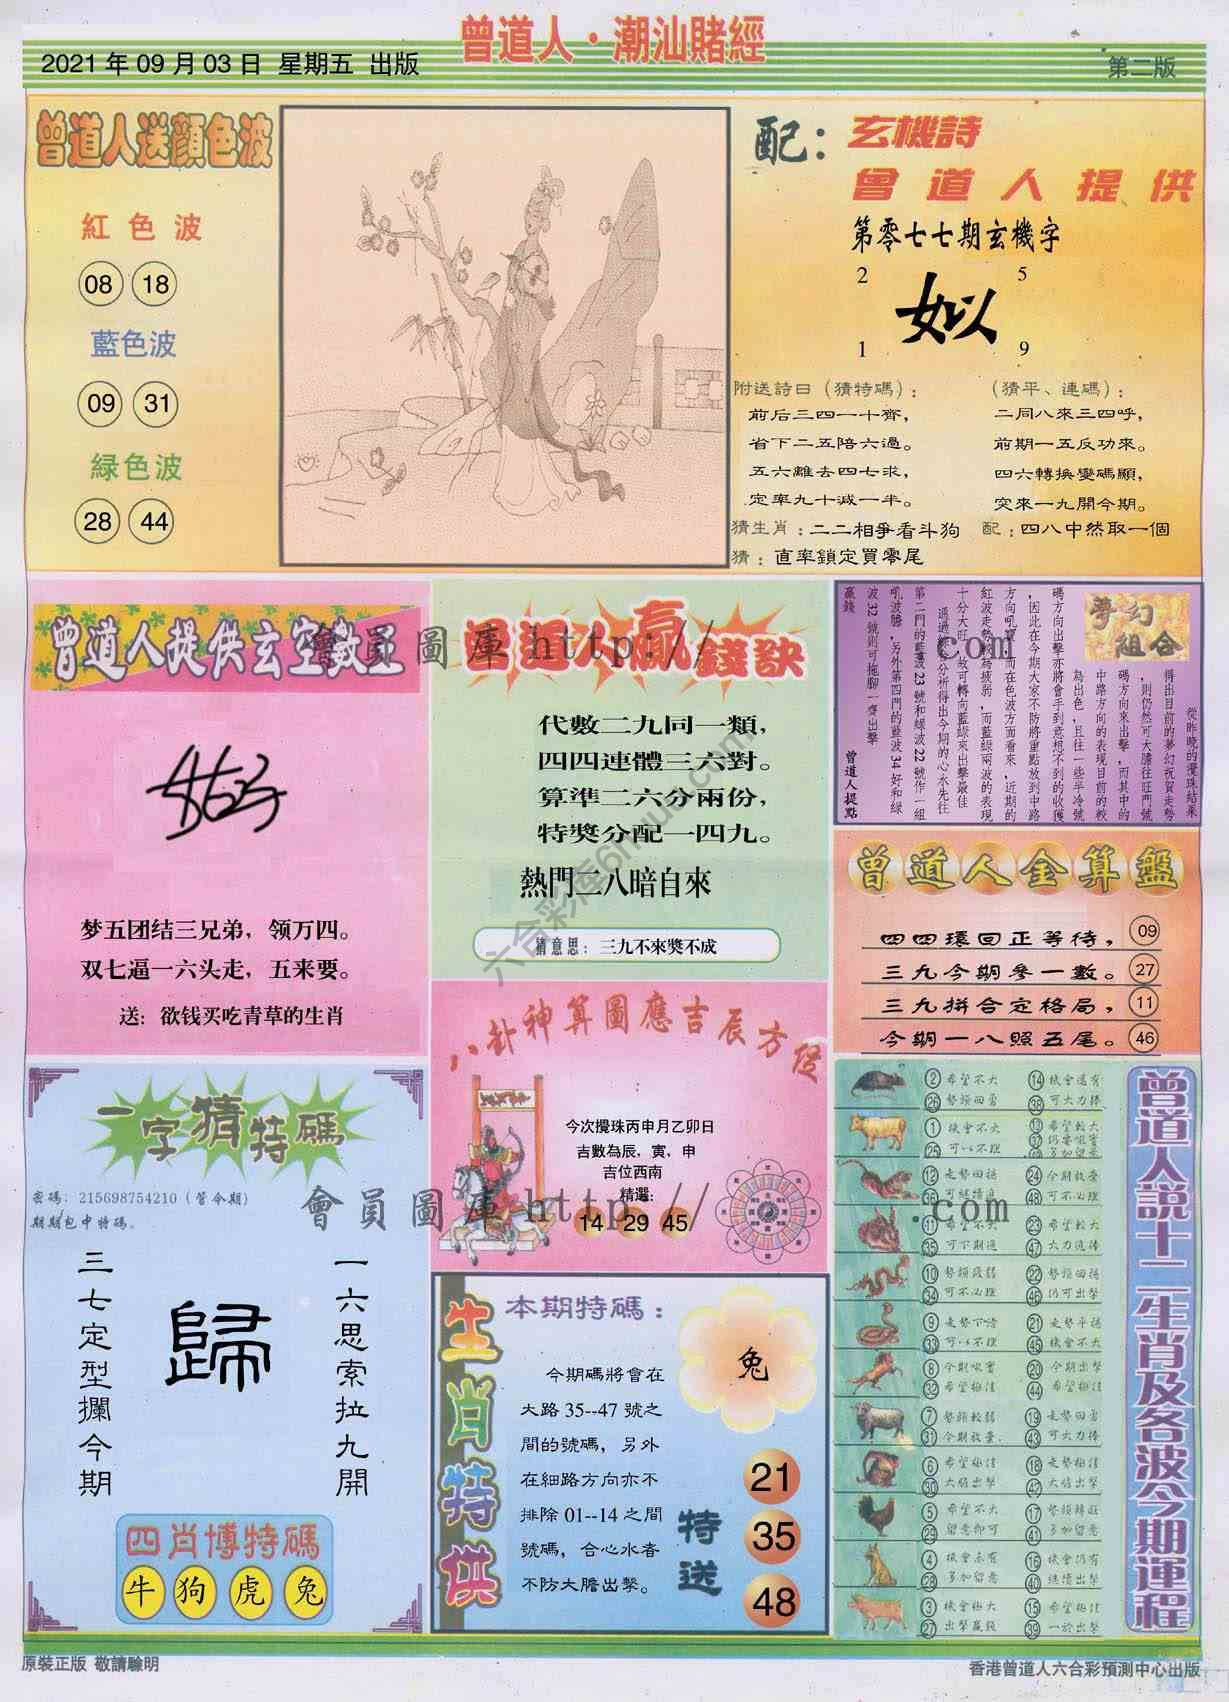 曾道人·潮汕賭經
2021年09月03日 星期五 出版
第二版
曾道人送顔色波
紅色波
08 18
藍色波
09 31
緑色波
28 44
配：
玄機詩
曾道人提供
第零七七期玄機字
2 5
姒
1 9
附送詩曰（猜特碼）：
前后三四一十齊，
省下二五陪六過。
五六離去四七求，
定率九十減一半。
（猜平、連碼）：
二同八來三四呼，
前期一五反功來。
四六轉換變碼顯，
突來一九開今期。
猜生肖：二二相爭看斗狗
配：四八中然取一個
猜：直率鎖定買零尾
曾道人提供玄空數王
梦五团结三兄弟，领万四。
双七逼一六头走，五来要。
送：欲钱买吃青草的生肖
曾道人贏錢訣
代數二九同一類，
四四連體三六對。
算準二六分兩份，
特獎分配一四九。
熱門二八暗自來
猜意思：三九不來獎不成
夢幻組合
從昨晚的攪珠結果
得出目前的夢幻祝賀走勢
，則仍然可大膽往旺門號
碼方向來出擊，而其中的
中路方向的表現目前的較
為出色，且往一些半冷號
碼方向出擊亦將會手到意想不到的收獲
，因此在今期大家不防將重點放到中路
方向吼寶，而在色波方面看來，近期的
紅波走勢較為疲弱，而藍綠兩波的表現
十分大旺，故可轉向藍綠來出擊最佳
通過綜合分析得出今期的心水先往
第二門的藍波23號和綠波22號作一組
吼波膽，另外第四門的藍波34好和綠
波32號則可拖腳一齊出擊
贏錢
曾道人提點
曾道人金算盤
四四環回正等待， 09
三九今期參一數。 27
三九拼合定格局， 11
今期一八照五尾。 46
八卦神算圖應吉辰方位
今次攪珠丙申月乙卯日
吉數為辰，寅，申
吉位西南
精選：
14 29 45
一字猜特碼
密碼：215698754210（管今期）
期期包中特碼。
一六思索拉九開
歸
三七定型攔今期
四肖博特碼
牛 狗 虎 兔
生肖特供
本期特碼：
兔
今期碼將會在
大路35--47號之
間的號碼，另外
在細路方向亦不
排除01--14之間
號碼，合心水者
不防大膽出擊。
特送
21
35
48
曾道人説十二生肖及各波今期運程
2 希望不大 14 機會還有
26 勢頭回勇 38 可大力捧
1 機會不大 13 希望較大
25 可一以不理 37
49 多加留意
12 走勢回揚 24 今期放棄
36 可繼續追 48 可不必理
11 希望不大 23 希望較大
35 可下期追 47 大力追捧
10 勢頭疲弱 22 勢頭回揚
34 可不必理 46 仍可出擊
9 走勢下滑 21 走勢平穩
33 可一以不理 45 機會不大
8 今期吸會 20 今期出擊
32 希望極佳 44 希望極佳
7 勢頭較弱 19 走勢回勇
31 今期放棄 43 可大力捧
6 希望極佳 18 走勢極佳
30 大膽出擊 42 大膽出擊
5 希望不大 17 勢頭轉旺
29 留意即可 41 多加留意
4 機會亦有 16 機會仍有
28 多加留意 40 繼續出擊
3 機會極大 15 希望極佳
27 出擊贏錢 39 一於出擊
會員圖庫 http://
.com
會員圖庫 http://
.com
六合彩库6htuc.com
原裝正版 敬請驗明
香港曾道人六合彩預測中心出版